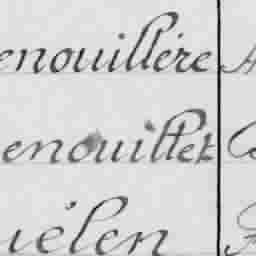 enouillère
enouillet
uélen